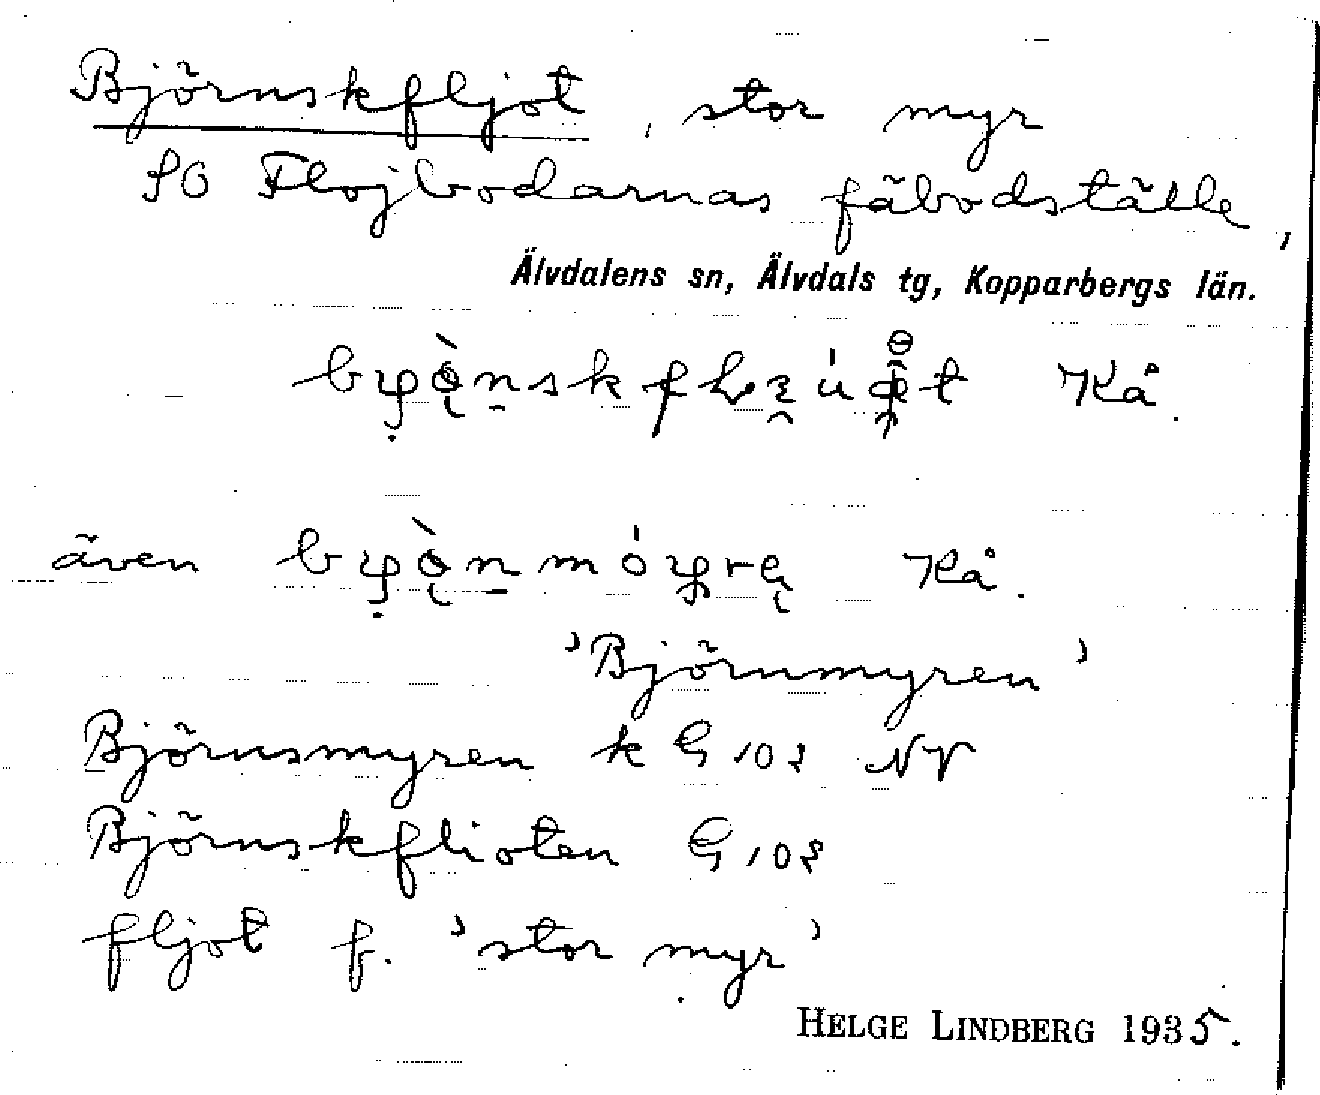 Björnskfljot, stor myr
SO Flojbodarnas fäbodställe,
Älvdalens sn, Älvdals tg, Kopparbergs län.
Kå.
även Kå.
'Björnmyren'
Björnsmyren k G 103 NV
Björnskflioten G 103
fljot f. 'stor myr'
HELGE LINDBERG 1935.